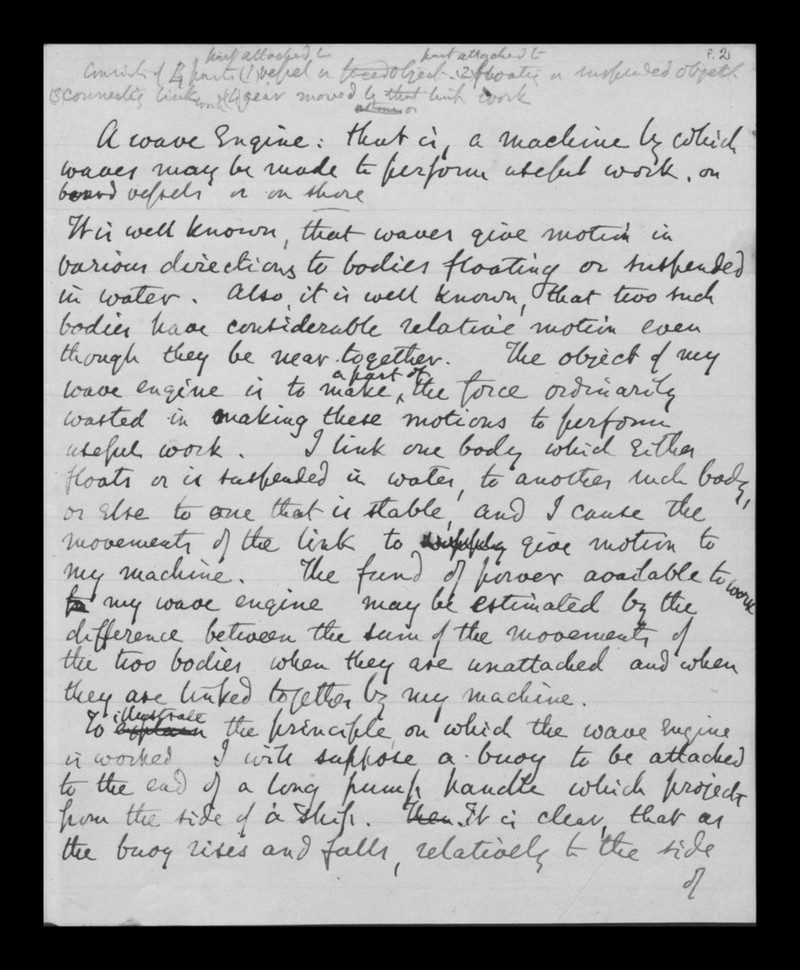 p. 2
part attached to part attached to
Consists of 4 parts (1) vessel or fixed object (2) floating or suspended object
(3) connecting link (4) gear moved by that link work
A wave Engine: that is, a machine by which
waves may be made to perform useful work, on
board vessels or on shore
It is well known, that waves give motion in
various directions to bodies floating or suspended
in water. Also, it is well known, that two such
bodies have considerable relative motion even
though they be near together. The object of my
a part of
wave engine is to make the force ordinarily
wasted in making these motions to perform
useful work. I link one body which Either
floats or is suspended in water, to another such body,
or Else to one that is stable, and I cause the
movements of the link to supply give motion to
my machine. The fund of power available to work
for my wave engine may be estimated by the
difference between the sum of the movements of
the two bodies when they are unattached and when
they are linked together by my machine.
illustrate
To explain the principle, on which the wave Engine
is worked I will suppose a buoy to be attached
to the end of a long pump handle which projects
from the side of a ship. Then It is clear, that as
the buoy rises and falls, relatively to the side
of